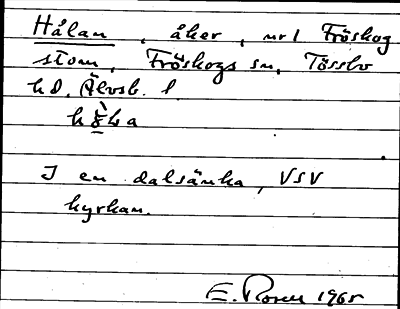 Hålan, åker, nr 1 Fröskog
stom, Fröskogs sn, Tössbo
hd. Älvsb. l.
I en dalsänka, VSV
kyrkan.
E. Rosen 1965